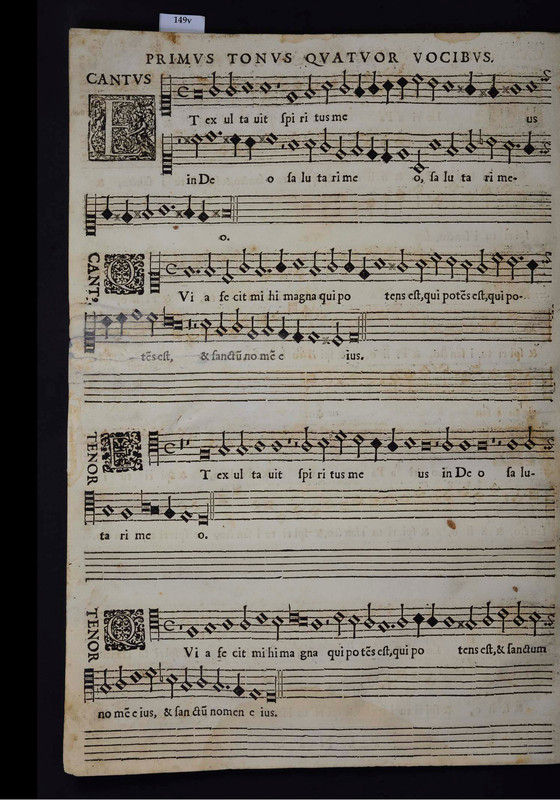 149v
PRIMVS TONVS QVATVOR VOCIBVS.
CANTVS
ET ex ul ta uit ſpi ri tus me us
in De o ſa lu ta ri me o, ſa lu ta ri me-
o.
CANT9.
QVi a fe cit mi hi magna qui po tens eſt, qui potẽs eſt, qui po-
tẽs eſt, & ſanctũ no mẽ e ius.
TENOR
ET ex ul ta uit ſpi ri tus me us in De o ſa lu-
ta ri me o.
TENOR
QVi a fe cit mi hi ma gna qui po tẽs eſt, qui po tens eſt, & ſanctum
no mẽ e ius, & ſan ctũ nomen e ius.